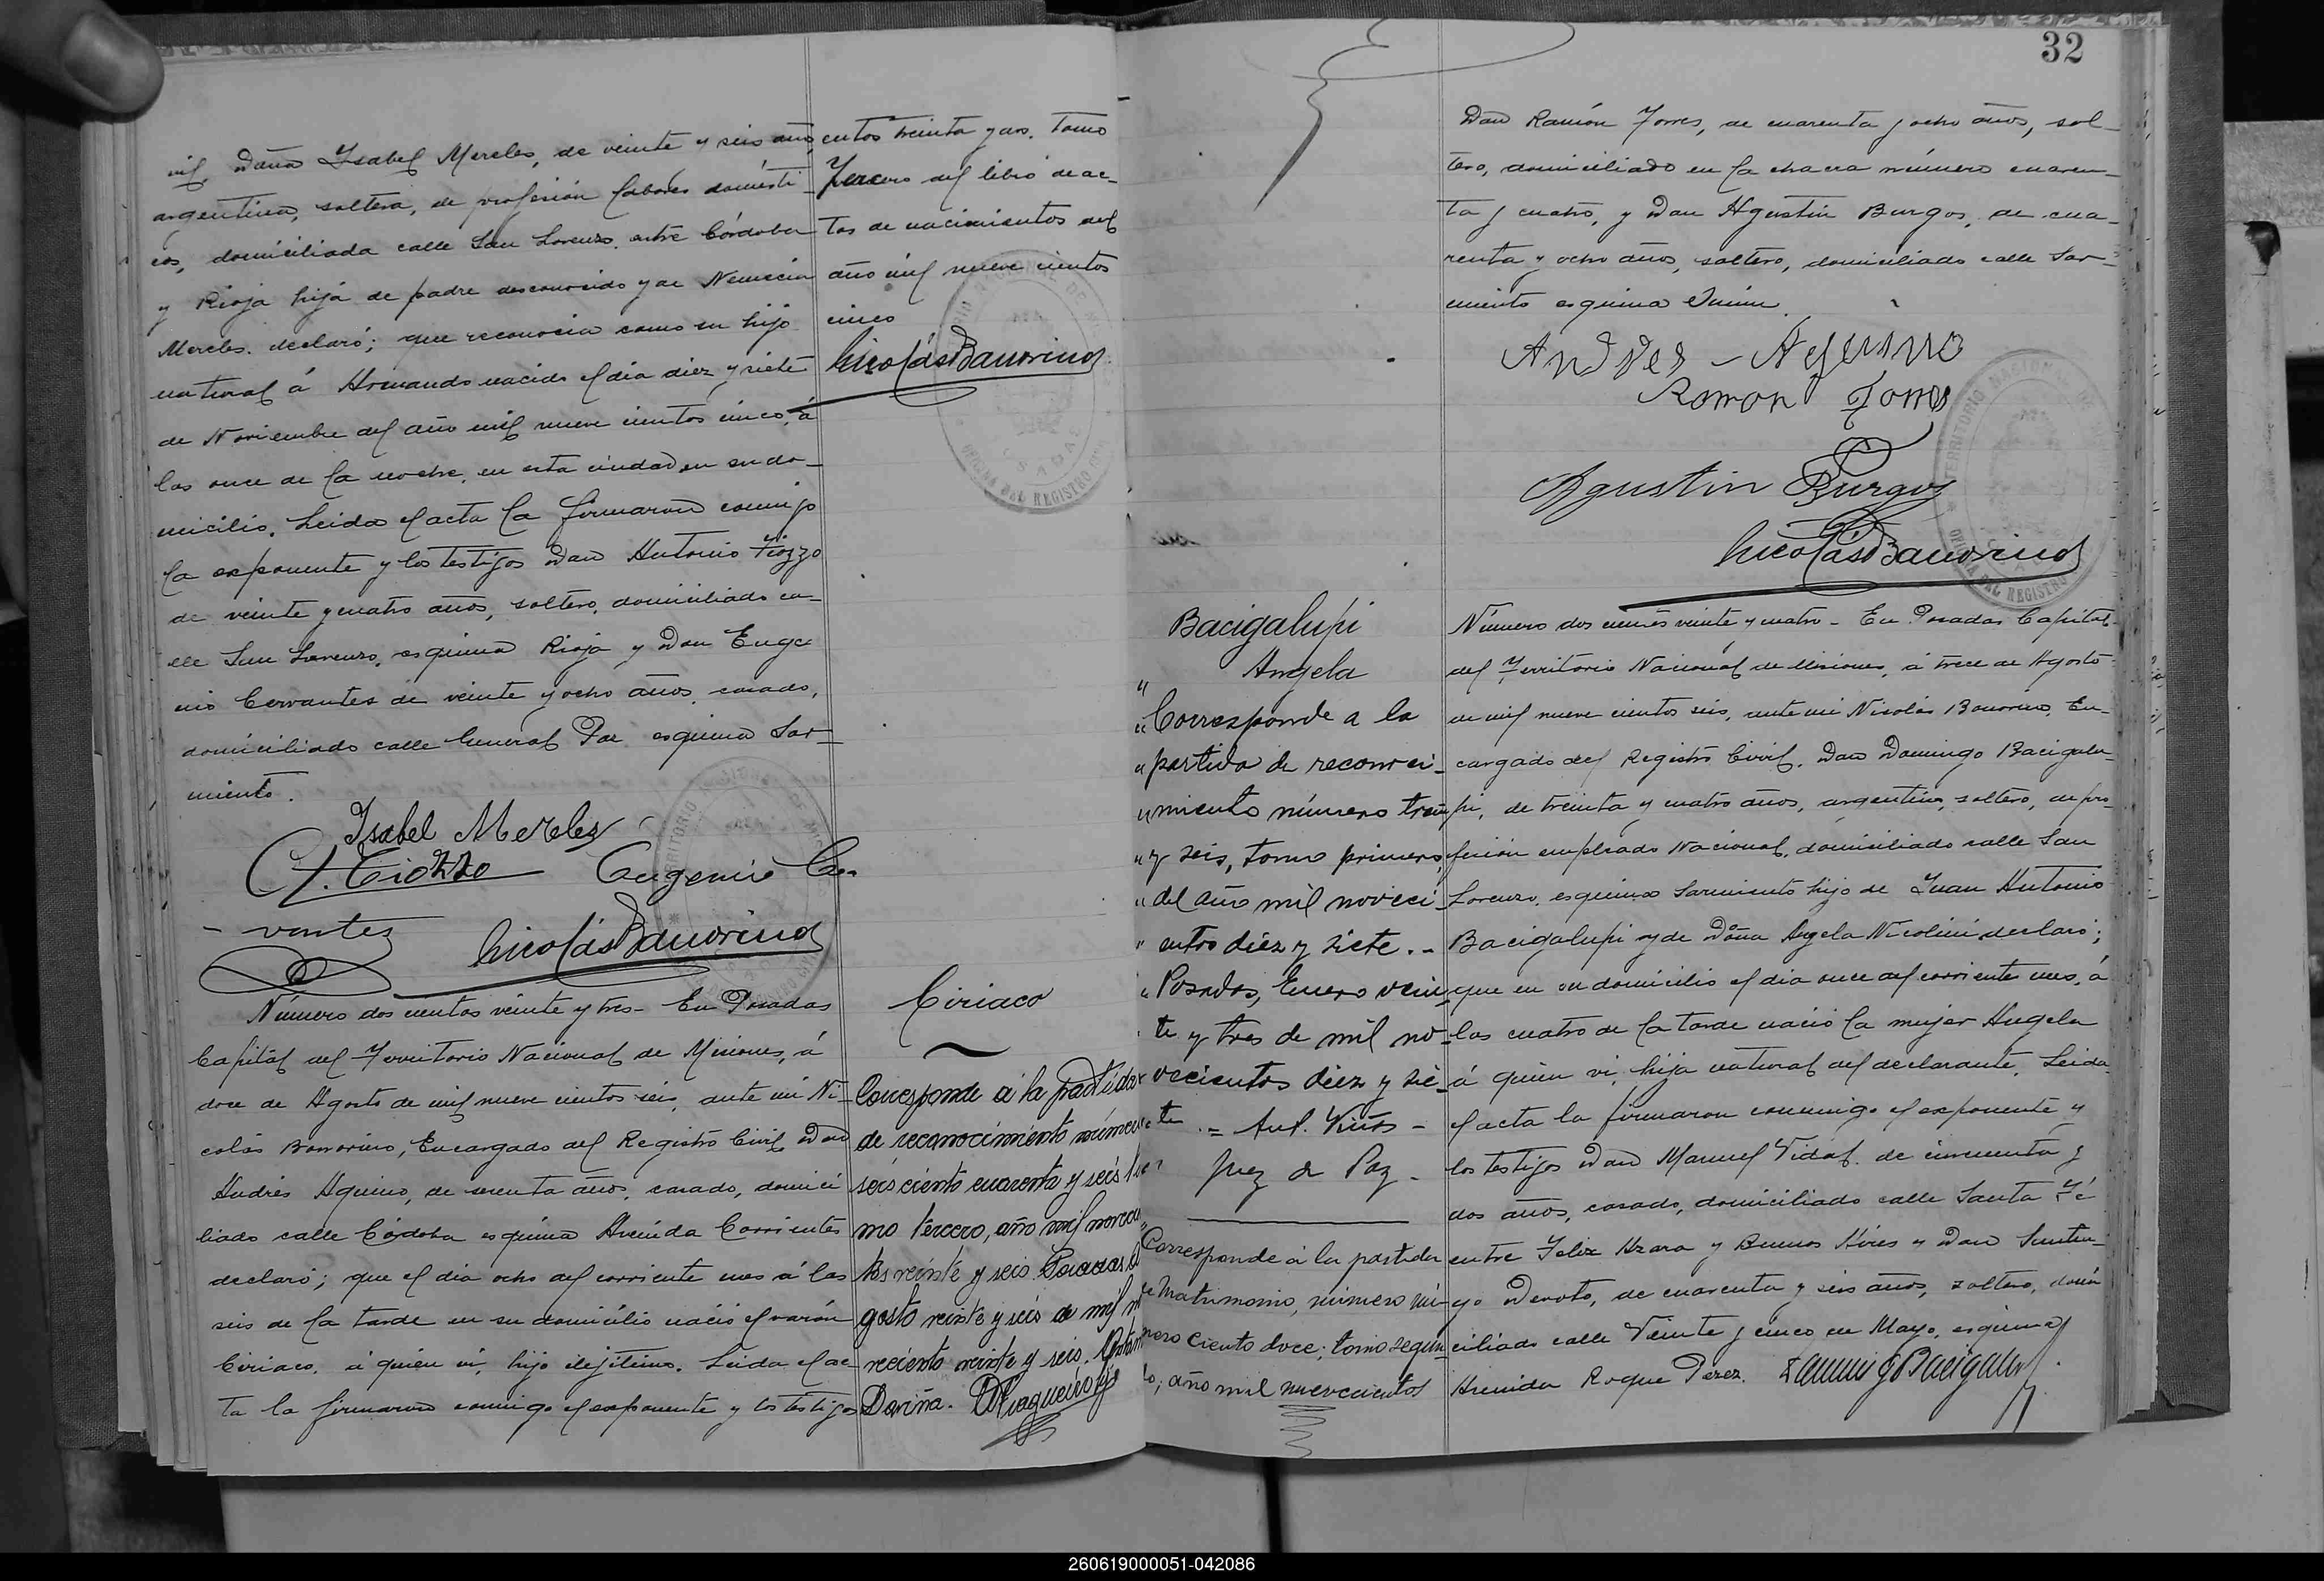 vil, Doña Ysabel Mereles, de veinte y seis años,
argentina, soltera, de profesión labores domésti-
cos, domiciliada calle San Lorenzo, entre Córdoba
y Rioja hija de padre desconocido y de Nemecia
Mereles, declaró; que reconocia como su hijo
natural á Armando nacido el dia diez y siete
de Noviembre del año mil nueve cientos cinco, á
las once de la noche, en esta ciudad en su do-
micilio. Leida el acta la firmaron conmigo
la exponente y los testigos Don Antonio Tiozzo
de veinte y cuatro años, soltero, domiciliado ca-
lle San Lorenzo, esquina Rioja y Don Euge
nio Cervantes de veinte y ocho años, casado,
domiciliado calle General Paz esquina Sar-
miento.
Ysabel Mereles
A. Tiozzo Eugenio Cer-
- vantes
Nicolás Bonorino
Número dos cientos veinte y tres - En Posadas
Capital del Territorio Nacional de Misiones, á
doce de Agosto de mil nueve cientos seis, ante mi Ni-
colás Bonorino, Encargado del Registro Civil, Don
Andrés Aquino, de años, casado, domici
liado calle Córdoba esquina Avenida Corrientes
declaró; que el dia ocho del corriente mes á las
seis de la tarde en su domicilio nació el varón
Ciriaco, á quien vi, hijo ilejitimo. Leida el ac
ta la firmaron conmigo el exponente y los testigos
entos treinta y dos, tomo
Tercero del libro de ac-
tas de nacimientos del
año mil nueve cientos
cinco
Nicolás Bonorino
Ciriaco
Corresponde á la partida
de reconocimiento número
seis ciento cuarenta y seis to
mo tercero, año mil novecien
tos veinte y seis. Posadas, A
gosto veinte y seis de mil no
veciento veinte y seis.
32
Don Ramón Torres, de cuarenta y ocho años, sol-
tero, domiciliado en la chacra número cuaren-
ta y cuatro, y Don Agustin Burgos, de cua-
renta y ocho años, soltero, domiciliado calle Sar-
miento esquina Junin.
Andres - Aquino
Ramon Torres
Agustin Burgos
Nicolás Bonorino
Bacigalupi
Angela
" Corresponde a la
" partida de reconoci-
" miento número trein
" y seis, tomo primero,
" del año mil noveci-
" entos diez y siete. -
" Posadas, Enero vein-
te y tres de mil no-
vecientos diez y sie-
te. = Ant. Viñas -
Juez de Paz -
Corresponde á la partida
de Matrimonio, número
mero ciento doce, tomo segun-
do, año mil nuevecientos
Número dos cientos veinte y cuatro - En Posadas Capital
del Territorio Nacional de Misiones, á trece de Agosto
de mil nueve cientos seis, ante mi Nicolás Bonorino, En-
cargado del Registro Civil, Don Domingo Bacigalu-
pi, de treinta y cuatro años, argentino, soltero, de pro-
fesión empleado Nacional, domiciliado calle San
Lorenzo, esquina Sarmiento hijo de Juan Antonio
Bacigalupi y de Doña Angela Nicolini, declaró;
que en su domicilio el dia once del corriente mes, á
las cuatro de la tarde nació la mujer Angela
á quien vi, hija natural del declarante. Leida
el acta la firmaron conmigo el exponente y
los testigos Don Manuel Vidal, de cincuenta y
dos años, casado, domiciliado calle Santa Fé
entre Felix Azara y Buenos Aires y Don
Devoto, de cuarenta y seis años, soltero, domi
ciliado calle Veinte y cinco de Mayo, esquina
Avenida Roque Perez.
260619000051-042086